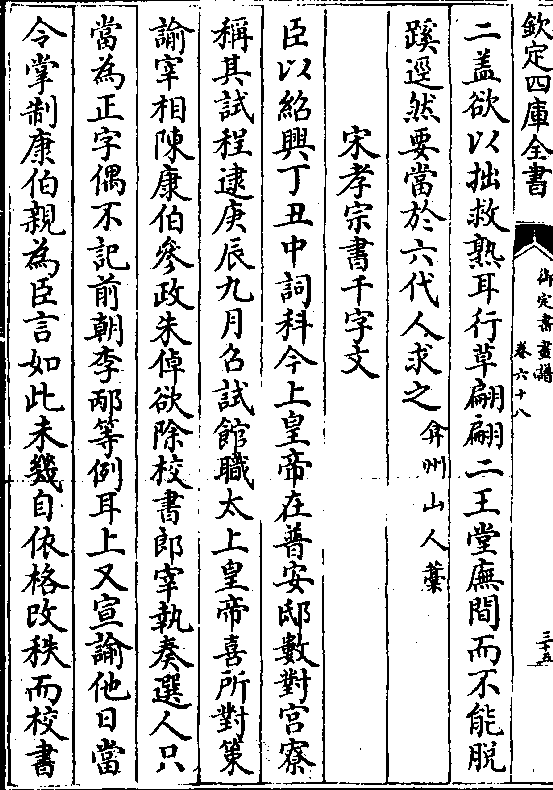 欽定四庫全書
御定書畫譜
卷六十八
三十五
二盖欲以拙救熟耳行草翩翩二王堂廡間而不能脱
蹊逕然要當於六代人求之弇州山人藁
宋孝宗書千字文
臣以紹興丁丑中詞科今上皇帝在普安邸數對宫寮
稱其試程逮庚辰九月召試館職太上皇帝喜所對策
諭宰相陳康伯參政朱倬欲除校書郎宰執奏選人只
當為正字偶不記前朝李邴等例耳上又宣諭他日當
令掌制康伯親為臣言如此未幾自依格改秩而校書